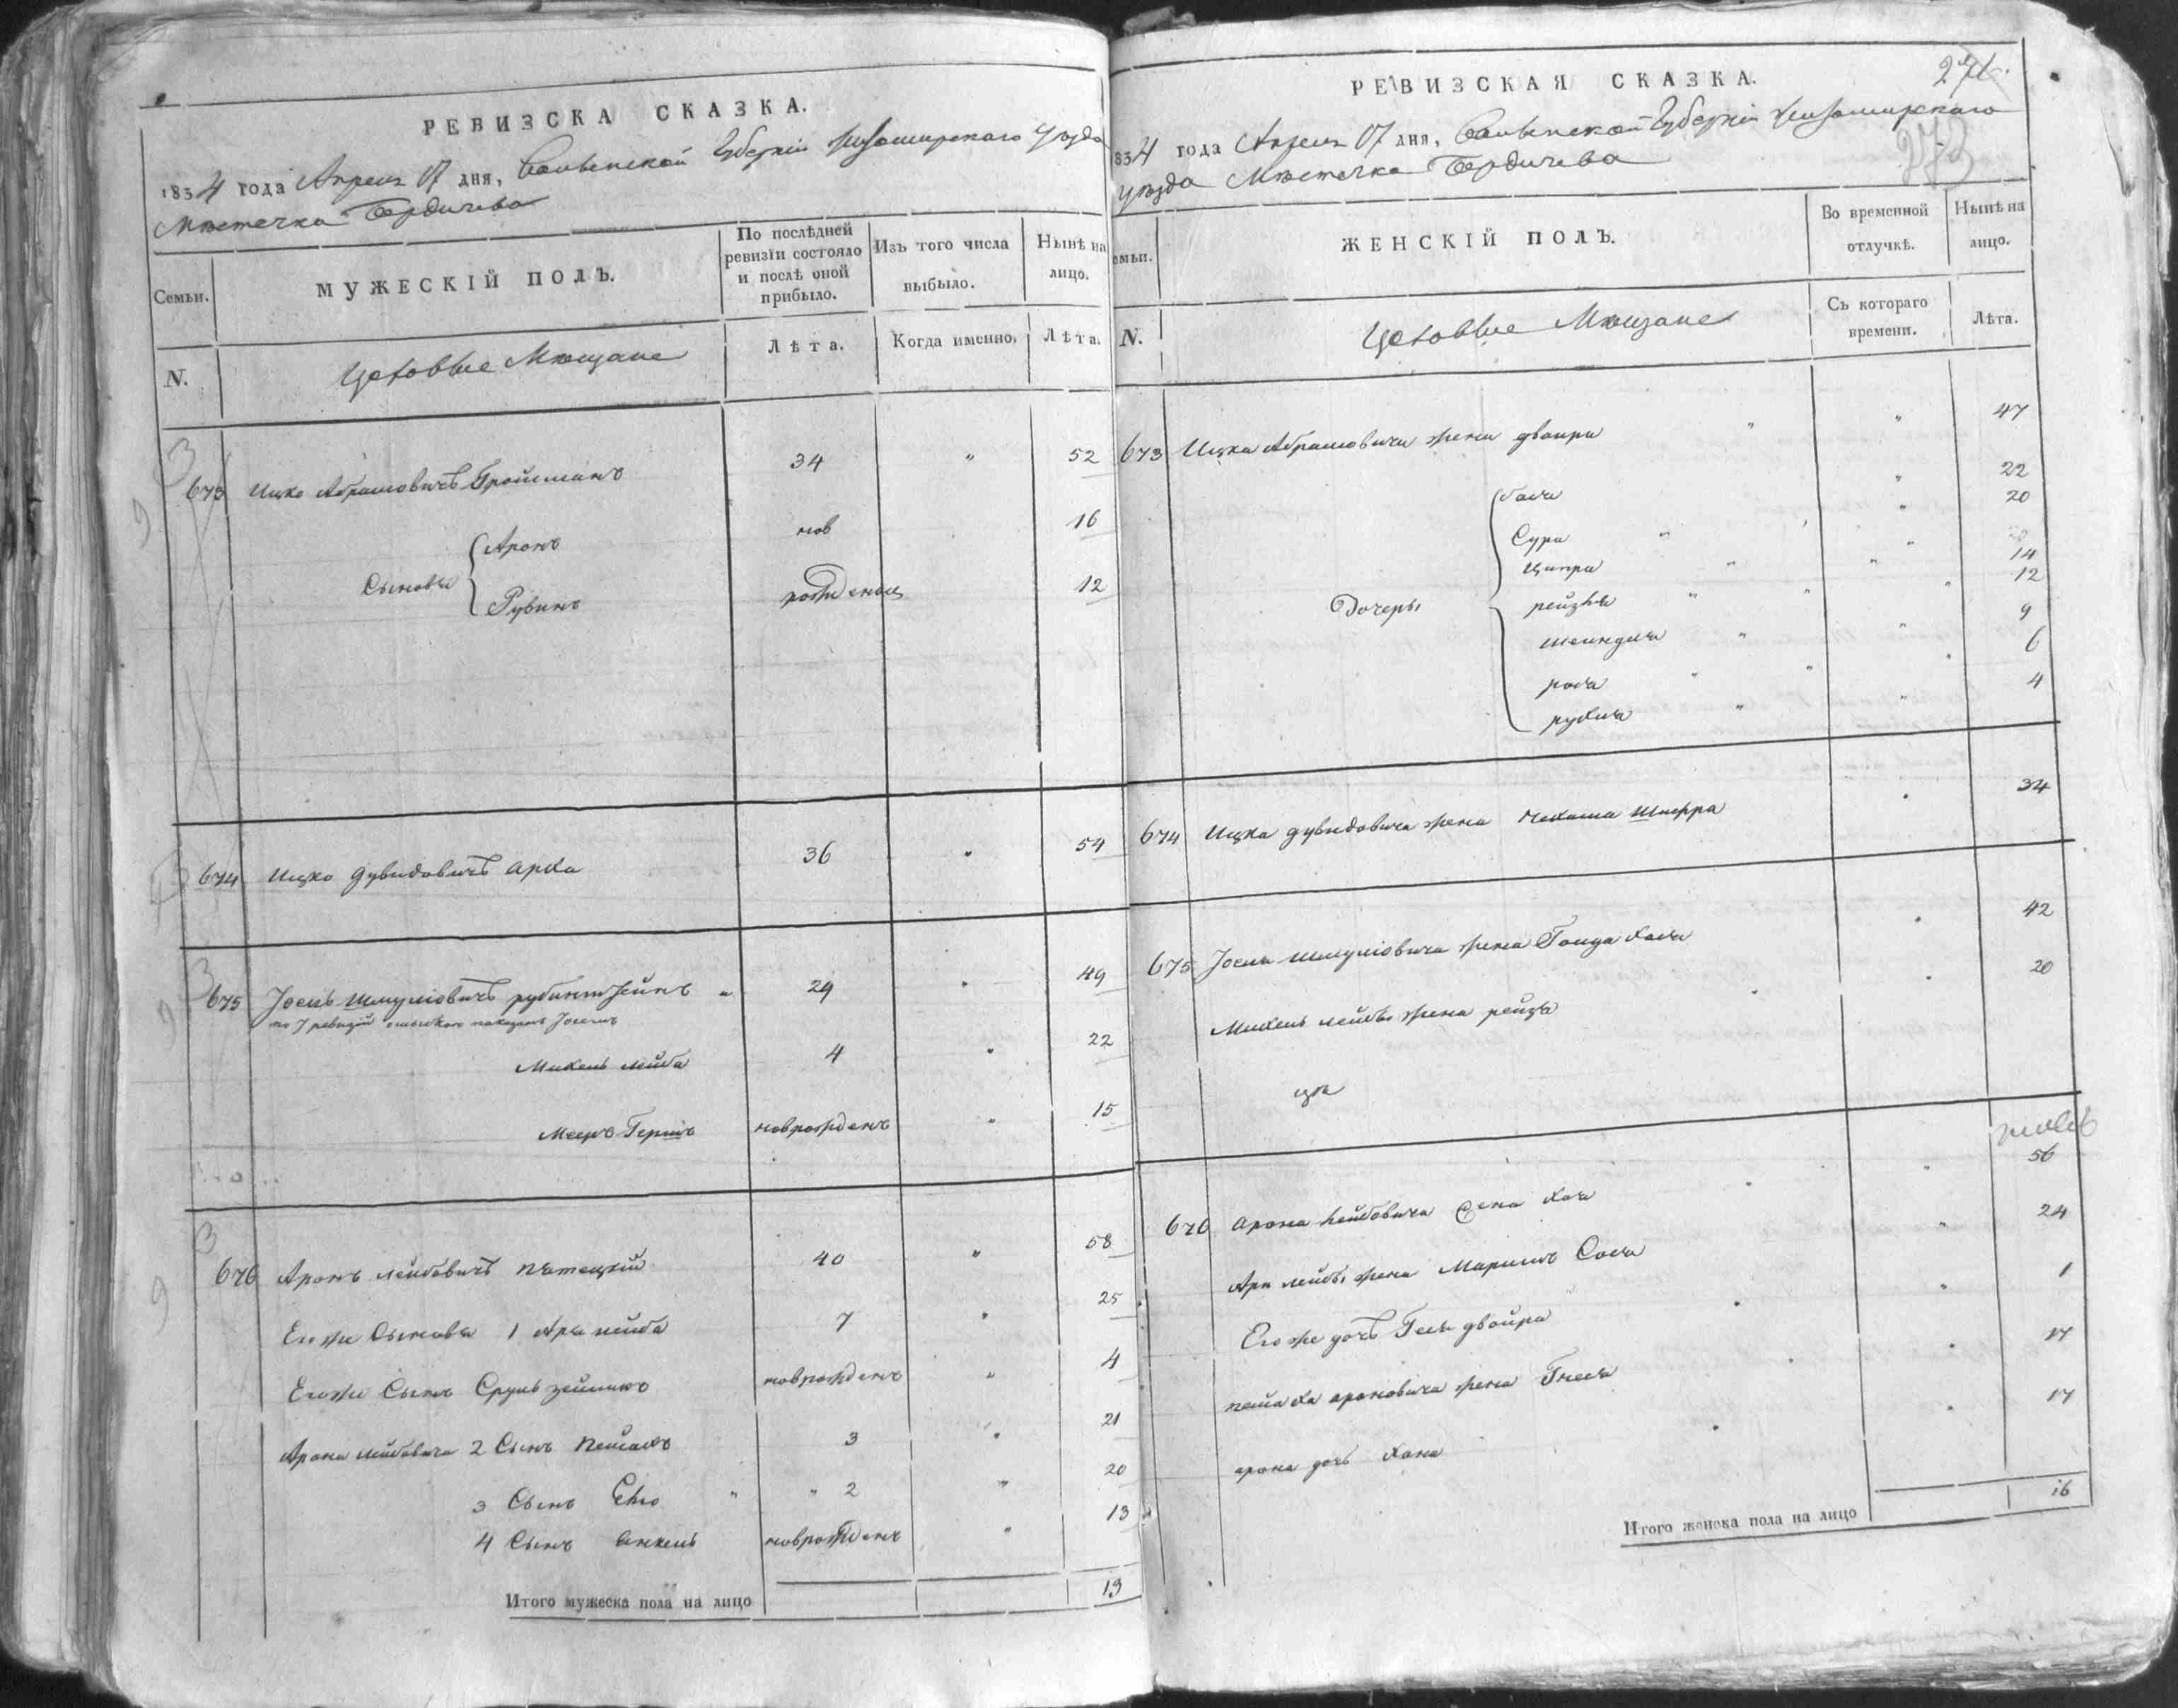 РЕВИЗСКА СКАЗКА.
1834 года Апреля 17 дня, Волынской Губерніи Житомирскаго Уѣзда
Мѣстечка Бердичева
Семьи.
МУЖЕСКІЙ ПОЛЪ.
По послѣдней ревизіи состояло и послѣ оной прибыло.
Изъ того числа выбыло.
Нынѣ на лицо.
N.
Цеховые Мѣщане
Лѣта.
Когда именно.
Лѣта.
673 Ицко Абрамовичъ Гройсманъ 34 " 52
Сыновья
Аронъ нов 16
Рувинъ рожденны 12
674 Ицко Дувидовичъ 36 " 54
675 Іось Шмуліовичъ рубинштейнъ " 29 " 49
по 7 ревизіи показанъ
Михель лейба 4 " 22
Мееръ Гершъ новрожденъ " 15
676 Аронъ лейбовичъ 40 " 58
Его же Сыновья 1 Арья лейба 7 " 25
Егоже Сынъ Сруль зейликъ новрожденъ " 4
Арона лейбовича 2 Сынъ пейсахъ 3 " 21
3 Сынъ " " 2 " 20
4 Сынъ янкель новрожденъ " 13
Итого мужеска пола на лицо 13
РЕВИЗСКАЯ СКАЗКА.
271.
273
1834 года Апреля 17 дня, Волынской Губерніи Житомирскаго
уѣзда Мѣстечка Бердичева
Семьи.
ЖЕНСКІЙ ПОЛЪ.
Во временной отлучкѣ.
Нынѣ на лицо.
N.
Цеховые Мѣщане
Съ котораго времени.
Лѣта.
673 Ицка Абрамовича жена двойра " " 47
Дочеры
бася " 22
Сура " " 20
Ципра " " 14
рейзя " " 12
шейндля " " 9
рося " " 6
рухля " " 4
674 Ицка дувидовича жена нехама Шифра " 34
675 Іося шмуліовича жена Голда хася " 42
Михель лейбы жена рейзя " " 20
676 Арона лейбовича жена хая " " 56
Ари лейбы жена Марьямъ Сося " 24
Его же дочь Геся двойра " " 1
пейсаха ароновича жена Гнеся " " 17
арона дочь хана " " 17
Итого женска пола на лицо 16